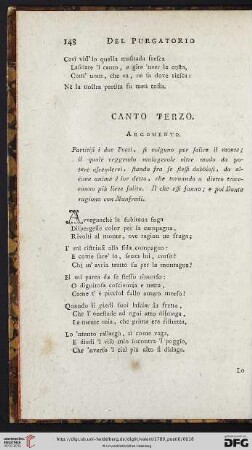 148 DEL PURGATORIO
Così vid' io quella masnada fresca
Lasciare 'l canto, e gire 'nver la costa,
Com' uom, che va, nè sa dove riesca:
Nè la nostra partita fu men tosta.
CANTO TERZO.
ARGOMENTO.
Partitisi i due Poeti, si volgono per salire il monte;
il quale veggendo malagevole oltre modo da po-
tere ascendersi, stando fra se stessi dubbiosi, da al-
cune anime è lor detto, che tornando a dietro trove-
ranno più lieve salita. Il che essi fanno; e poi Dante
ragiona con Manfredi.
Avvegnachè la subitana fuga
Dispergesse color per la campagna,
Rivolti al monte, ove ragion ne fruga;
I' mi ristrinsi alla fida compagna:
E come sare' io, senza lui, corso?
Chi m' avria tratto su per la montagna?
El mi parea da se stesso rimorso:
O dignitosa coscienza e netta,
Come t' è picciol fallo amaro morso!
Quando li piedi suoi lasciar la fretta,
Che l'onestade ad ogni atto dismaga,
La mente mia, che prima era ristretta,
Lo 'ntento rallargò, sì come vaga,
E diedi 'l viso mio incontra 'l poggio,
Che 'nverso 'l ciel più alto si dislaga.
Lo